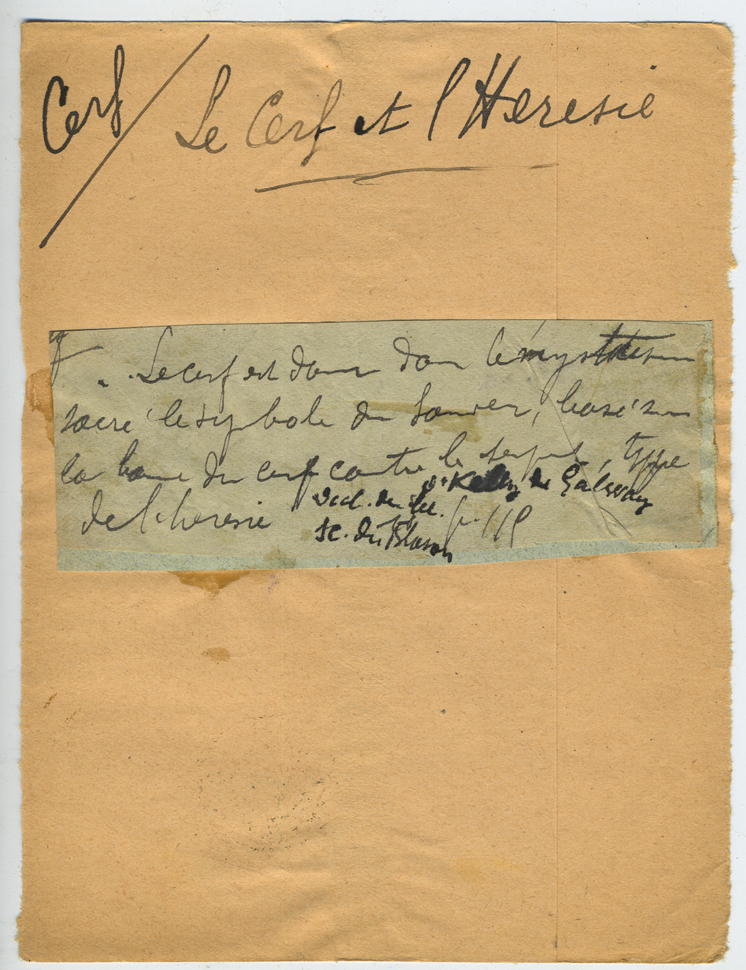 Cerf / Le Cerf et l'Heresie
". Le cerf est donc dans le mysticisme
sacré le symbole du Sauveur, basé sur
la haine du cerf contre le serpent, type
de l'heresie
O'Kelly de Galway
Dict. de la
Sc. du Blason p. 119